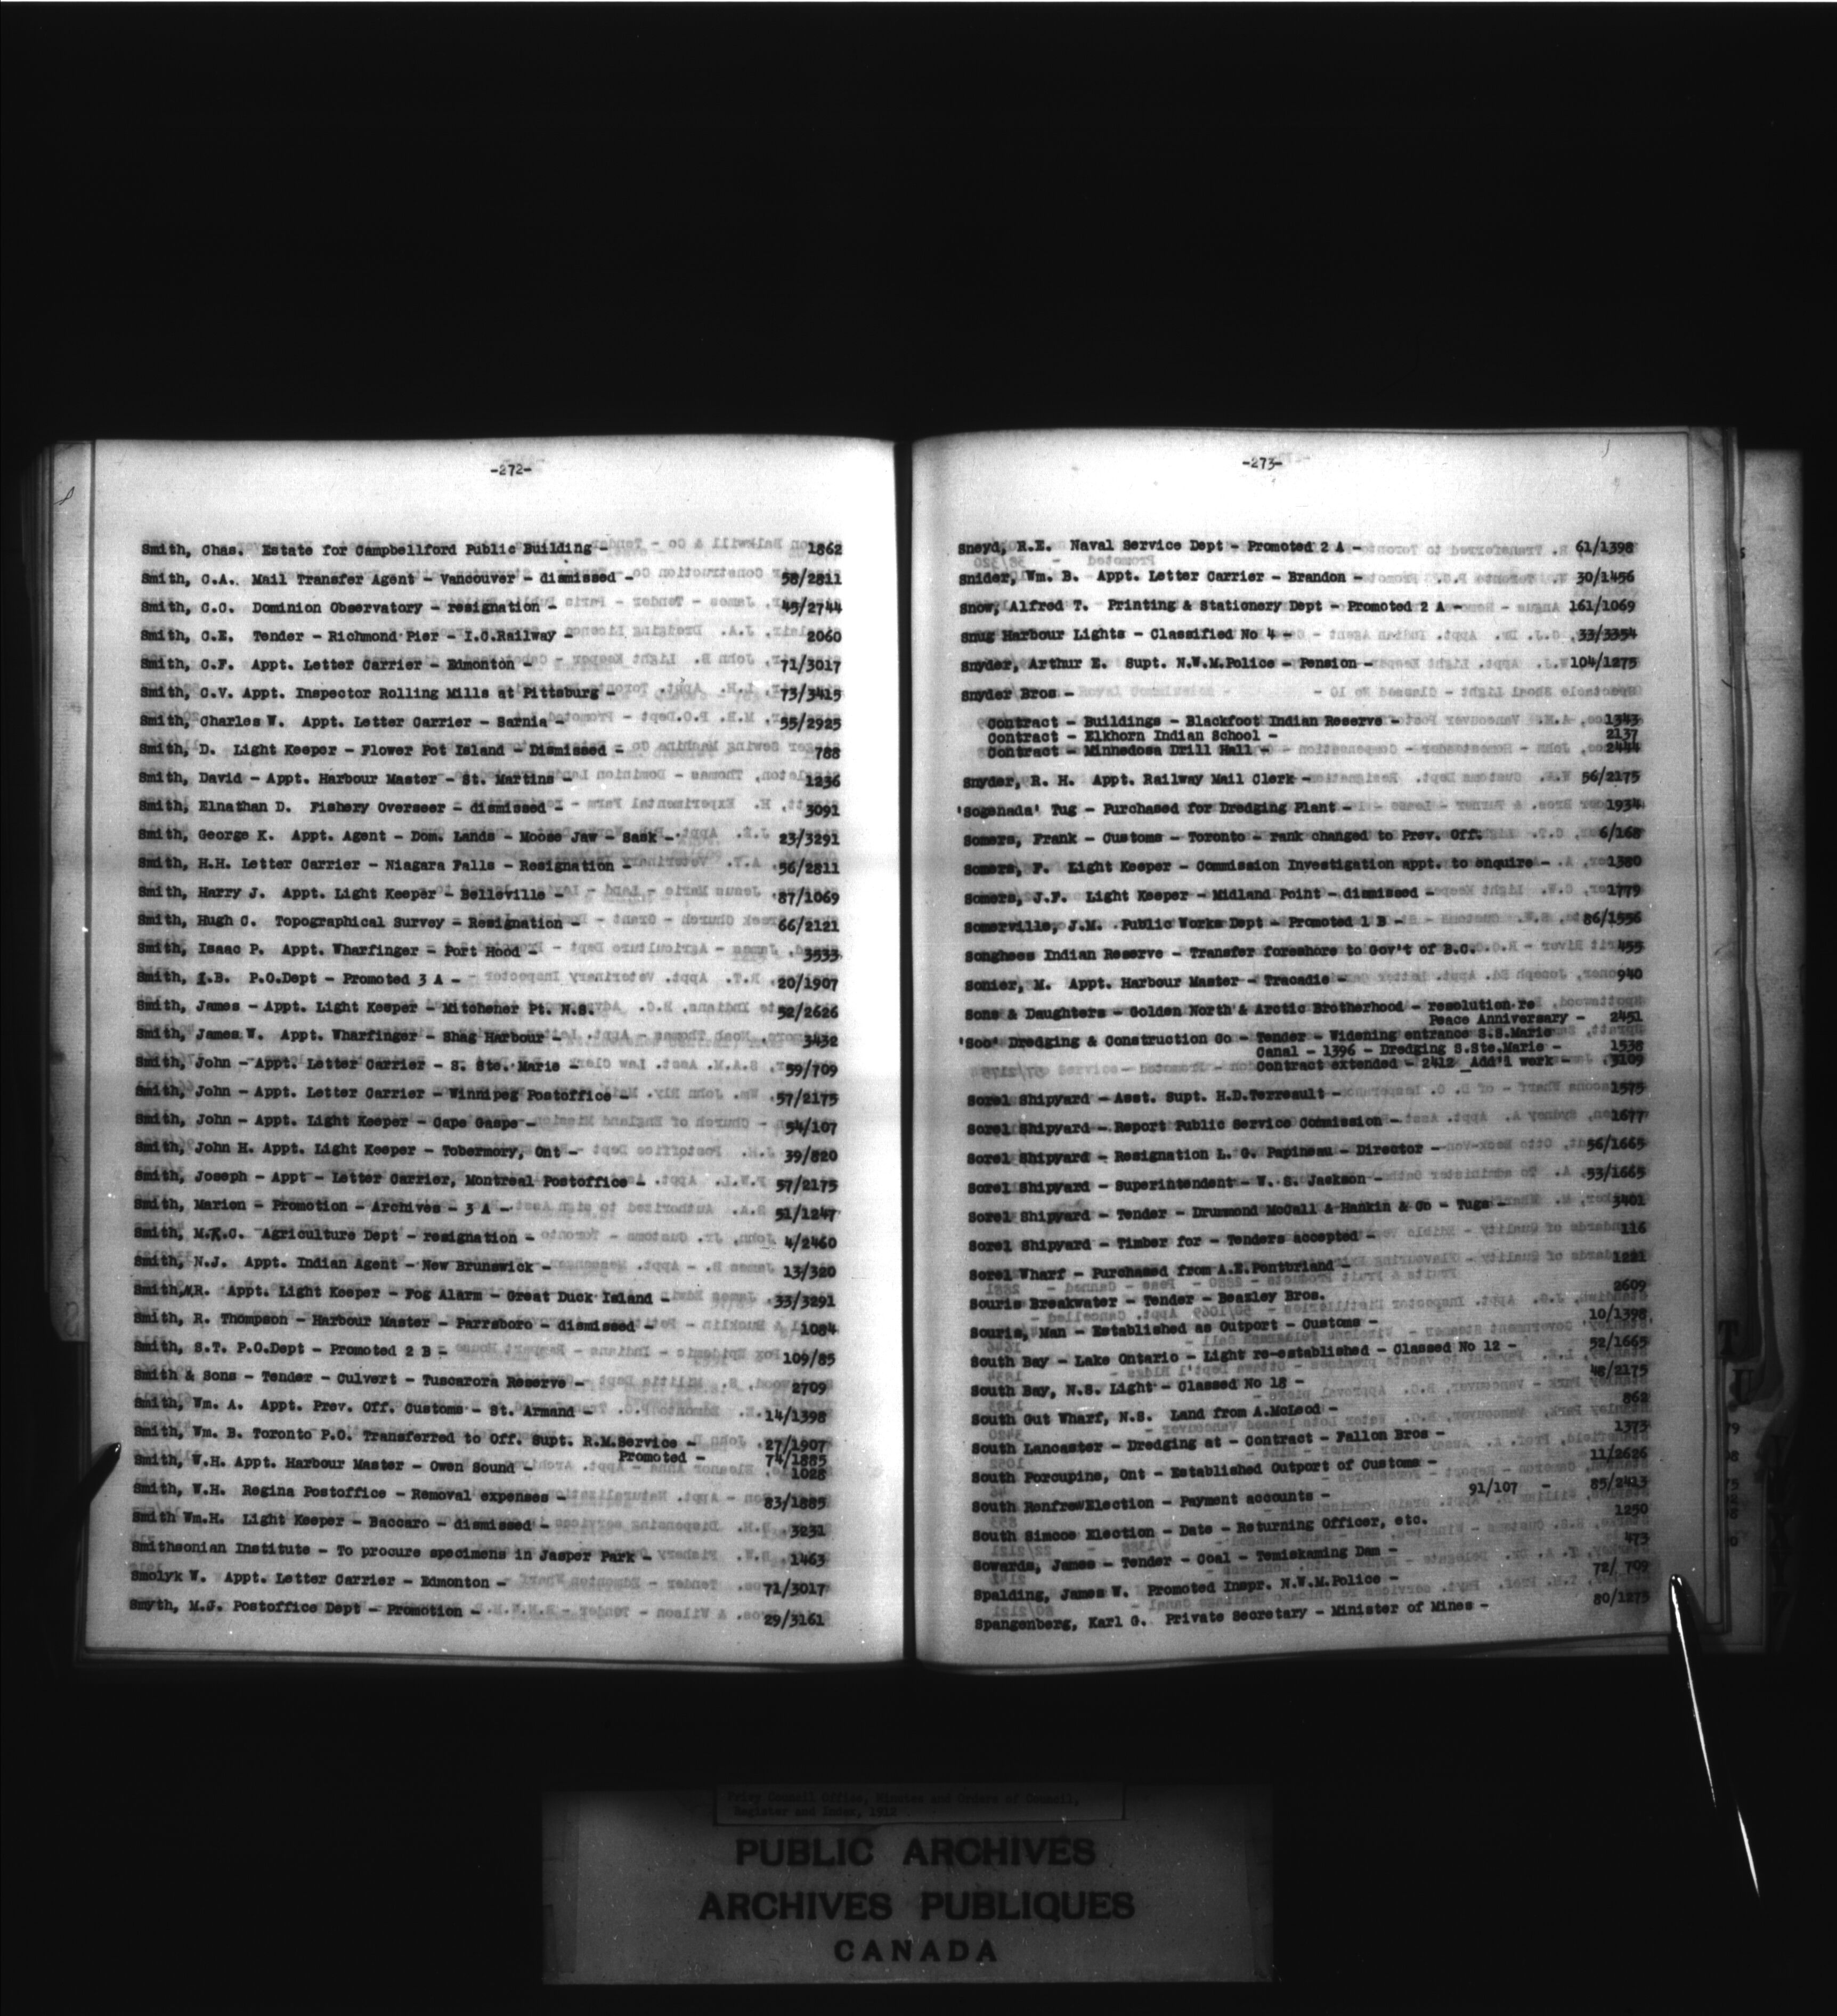 -272-
Smith, Chas. Estate for Campbellford Public Building - 1862
Smith, C.A. Mail Transfer Agent - Vancouver - dismissed - 58/2811
Smith, C.C. Dominion Observatory - resignation - 45/2744
Smith, C.E. Tender - Richmond Pier - I.C.Railway - 2060
Smith, C.F. Appt. Letter Carrier - Edmonton - 71/3017
Smith, C.V. Appt. Inspector Rolling Mills at Pittsburg - 73/3415
Smith, Charles W. Appt. Letter Carrier - Sarnia - 55/2925
Smith, D. Light Keeper - Flower Pot Island - Dismissed - 788
Smith, David - Appt. Harbour Master - St. Martins - 1236
Smith, Elnathan D. Fishery Overseer - dismissed - 3091
Smith, George K. Appt. Agent - Dom. Lands - Moose Jaw - Sask - 23/3291
Smith, H.H. Letter Carrier - Niagara Falls - Resignation - 56/2811
Smith, Harry J. Appt. Light Keeper - Belleville - 87/1069
Smith, Hugh C. Topographical Survey - Resignation - 66/2121
Smith, Isaac P. Appt. Wharfinger - Port Hood - 3533
Smith, I.B. P.O.Dept - Promoted 3 A - 20/1907
Smith, James - Appt. Light Keeper - Mitchener Pt. N.S. 52/2626
Smith, James W. Appt. Wharfinger - Shag Harbour - 3432
Smith, John - Appt. Letter Carrier - S. Ste. Marie - 59/709
Smith, John - Appt. Letter Carrier - Winnipeg Postoffice - 57/2175
Smith, John - Appt. Light Keeper - Cape Gaspe - 54/107
Smith, John H. Appt. Light Keeper - Tobermory, Ont - 39/820
Smith, Joseph - Appt - Letter Carrier, Montreal Postoffice - 57/2175
Smith, Marion - Promotion - Archives - 3 A - 51/1247
Smith, M.K.C. Agriculture Dept - resignation - 4/2460
Smith, N.J. Appt. Indian Agent - New Brunswick - 13/320
Smith, R. Appt. Light Keeper - Fog Alarm - Great Duck Island - 33/3291
Smith, R. Thompson - Harbour Master - Parrsboro - dismissed - 1084
Smith, S.T. P.O.Dept - Promoted 2 B - 109/85
Smith & Sons - Tender - Culvert - Tuscarora Reserve - 2709
Smith, Wm. A. Appt. Prev. Off. Customs - St. Armand - 14/1398
Smith, Wm. B. Toronto P.O. Transferred to Off. Supt. R.M.Service - 27/1907
Promoted - 74/1885
Smith, W.H. Appt. Harbour Master - Owen Sound - 1028
Smith, W.H. Regina Postoffice - Removal expenses - 83/1885
Smith Wm.H. Light Keeper - Baccaro - dismissed - 3231
Smithsonian Institute - To procure specimens in Jasper Park - 1463
Smolyk W. Appt. Letter Carrier - Edmonton - 71/3017
Smyth, M.G. Postoffice Dept - Promotion - 29/3161
-273-
Sneyd, R.E. Naval Service Dept - Promoted 2 A - 61/1398
Snider, Wm. B. Appt. Letter Carrier - Brandon - 30/1456
Snow, Alfred T. Printing & Stationery Dept - Promoted 2 A - 161/1069
Snug Harbour Lights - Classified No 4 - 33/3354
Snyder, Arthur E. Supt. N.W.M.Police - Pension - 104/1275
Snyder Bros -
Contract - Buildings - Blackfoot Indian Reserve - 1343
Contract - Elkhorn Indian School - 2137
Contract - Minnedosa Drill Hall - 2444
Snyder, R. H. Appt. Railway Mail Clerk - 56/2175
'Sogenada' Tug - Purchased for Dredging Plant - 1934
Somers, Frank - Customs - Toronto - rank changed to Prev. Off. 6/168
Somers, F. Light Keeper - Commission Investigation appt. to enquire - 1380
Somers, J.F. Light Keeper - Midland Point - dismissed - 1779
Somerville, J.M. Public Works Dept - Promoted 1 B - 86/1556
Songhees Indian Reserve - Transfer foreshore to Gov't of B.C. 455
Sonier, M. Appt. Harbour Master - Tracadie - 940
Sons & Daughters - Golden North & Arctic Brotherhood - resolution re
Peace Anniversary - 2451
'Soo' Dredging & Construction Co - Tender - Widening entrance S.S.Marie
Canal - 1396 - Dredging S.Ste.Marie - 1538
Contract extended - 2412 _Add'l work - 3109
Sorel Shipyard - Asst. Supt. H.D.Terreault - 1575
Sorel Shipyard - Report Public Service Commission - 1677
Sorel Shipyard - Resignation L. G. Papineau - Director - 56/1665
Sorel Shipyard - Superintendent - W. S. Jackson - 53/1665
Sorel Shipyard - Tender - Drummond McCall & Hankin & Co - Tugs - 3401
Sorel Shipyard - Timber for - Tenders accepted - 116
Sorel Wharf - Purchased from A.E.Pontbriand - 1221
Souris Breakwater - Tender - Beazley Bros. 2609
Souris, Man - Established as Outport - Customs - 10/1398
South Bay - Lake Ontario - Light re-established - Classed No 12 - 52/1665
South Bay, N.S. Light - Classed No 18 - 48/2175
South Gut Wharf, N.S. Land from A.McLeod - 862
South Lancaster - Dredging at - Contract - Fallon Bros - 1373
South Porcupine, Ont - Established Outport of Customs - 11/2626
South Renfrew Election - Payment accounts - 91/107 - 85/2413
South Simcoe Election - Date - Returning Officer, etc. 1250
Sowards, James - Tender - Coal - Temiskaming Dam - 473
Spalding, James W. Promoted Inspr. N.W.M.Police - 72/ 709
Spangenberg, Karl G. Private Secretary - Minister of Mines - 80/1275
Privy Council Office, Minutes and Orders of Council,
Register and Index, 1912
PUBLIC ARCHIVES
ARCHIVES PUBLIQUES
CANADA